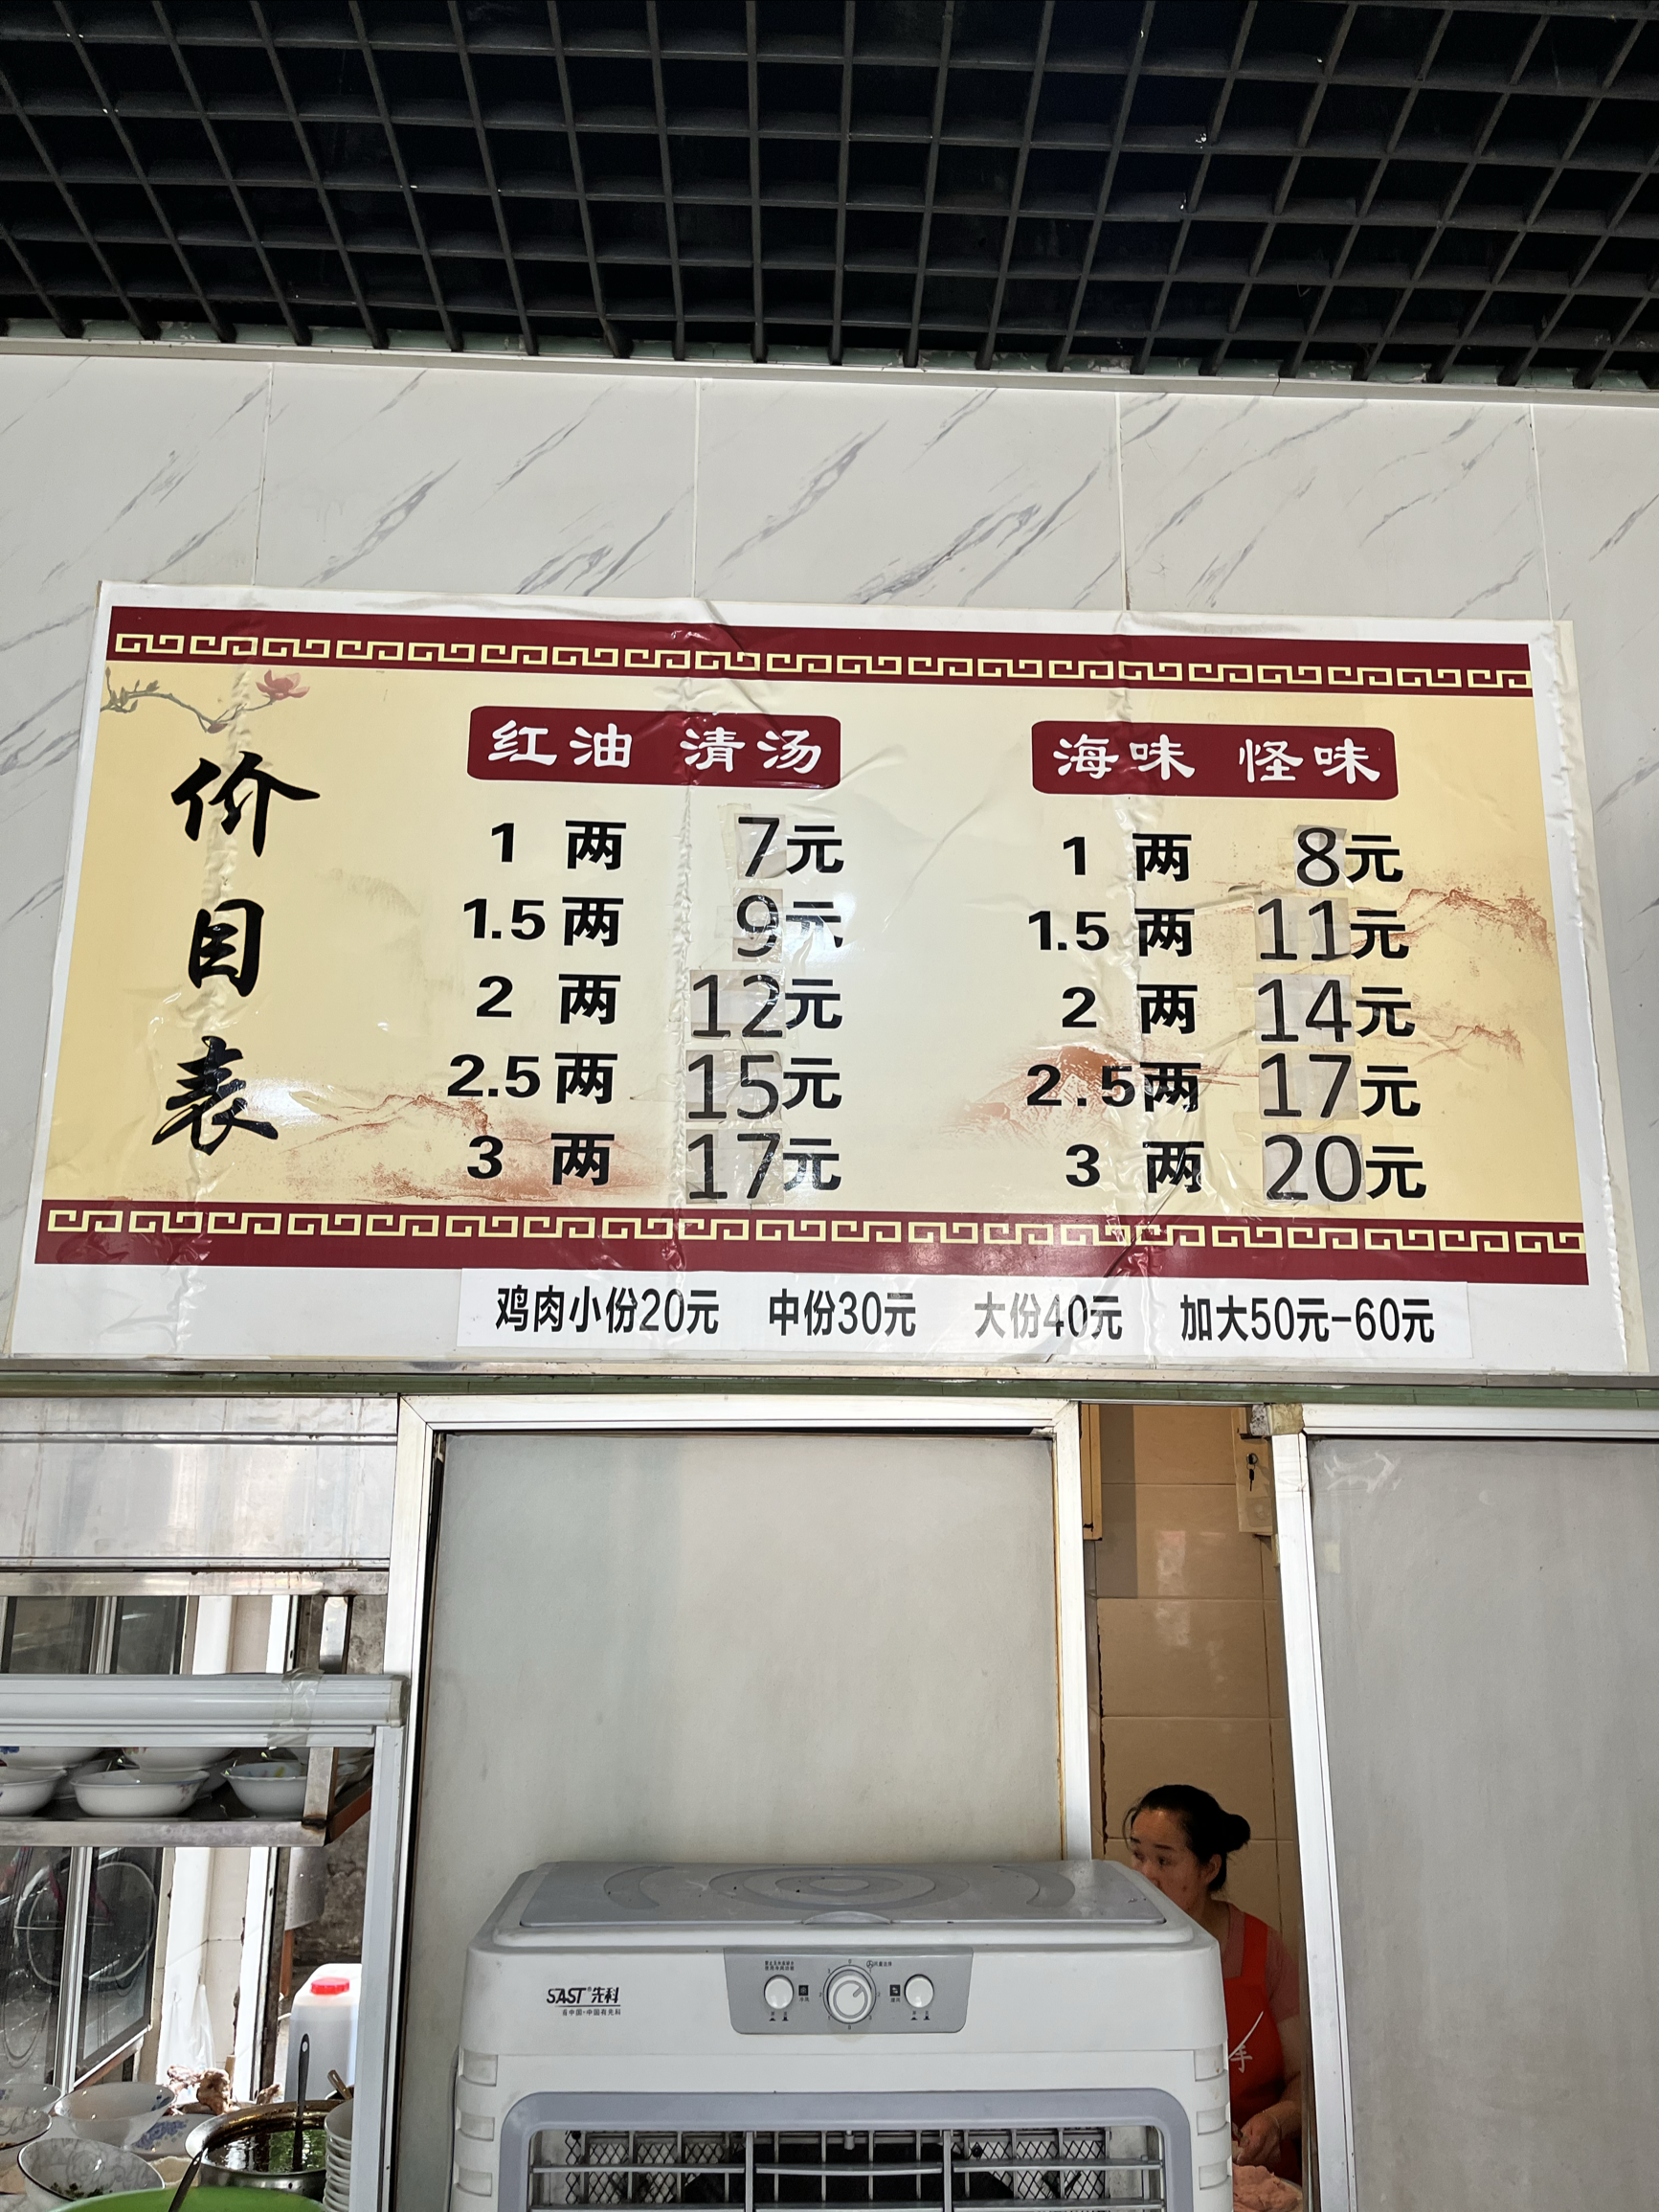 价目表
红油 清汤
1 两 7元
1.5 两 9元
2 两 12元
2.5 两 15元
3 两 17元
海味 怪味
1 两 8元
1.5 两 11元
2 两 14元
2.5两 17元
3 两 20元
鸡肉小份20元 中份30元 大份40元 加大50元-60元
SAST 先科